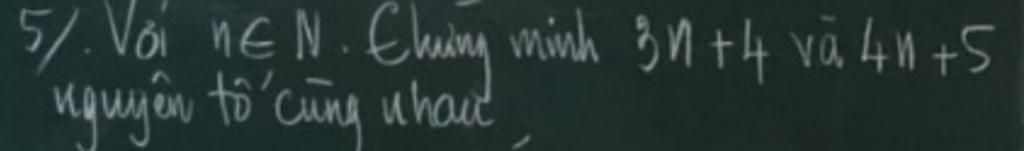 5/. Với n ∈ N. Chứng minh 3n + 4 và 4n + 5
nguyên tố cùng nhau.